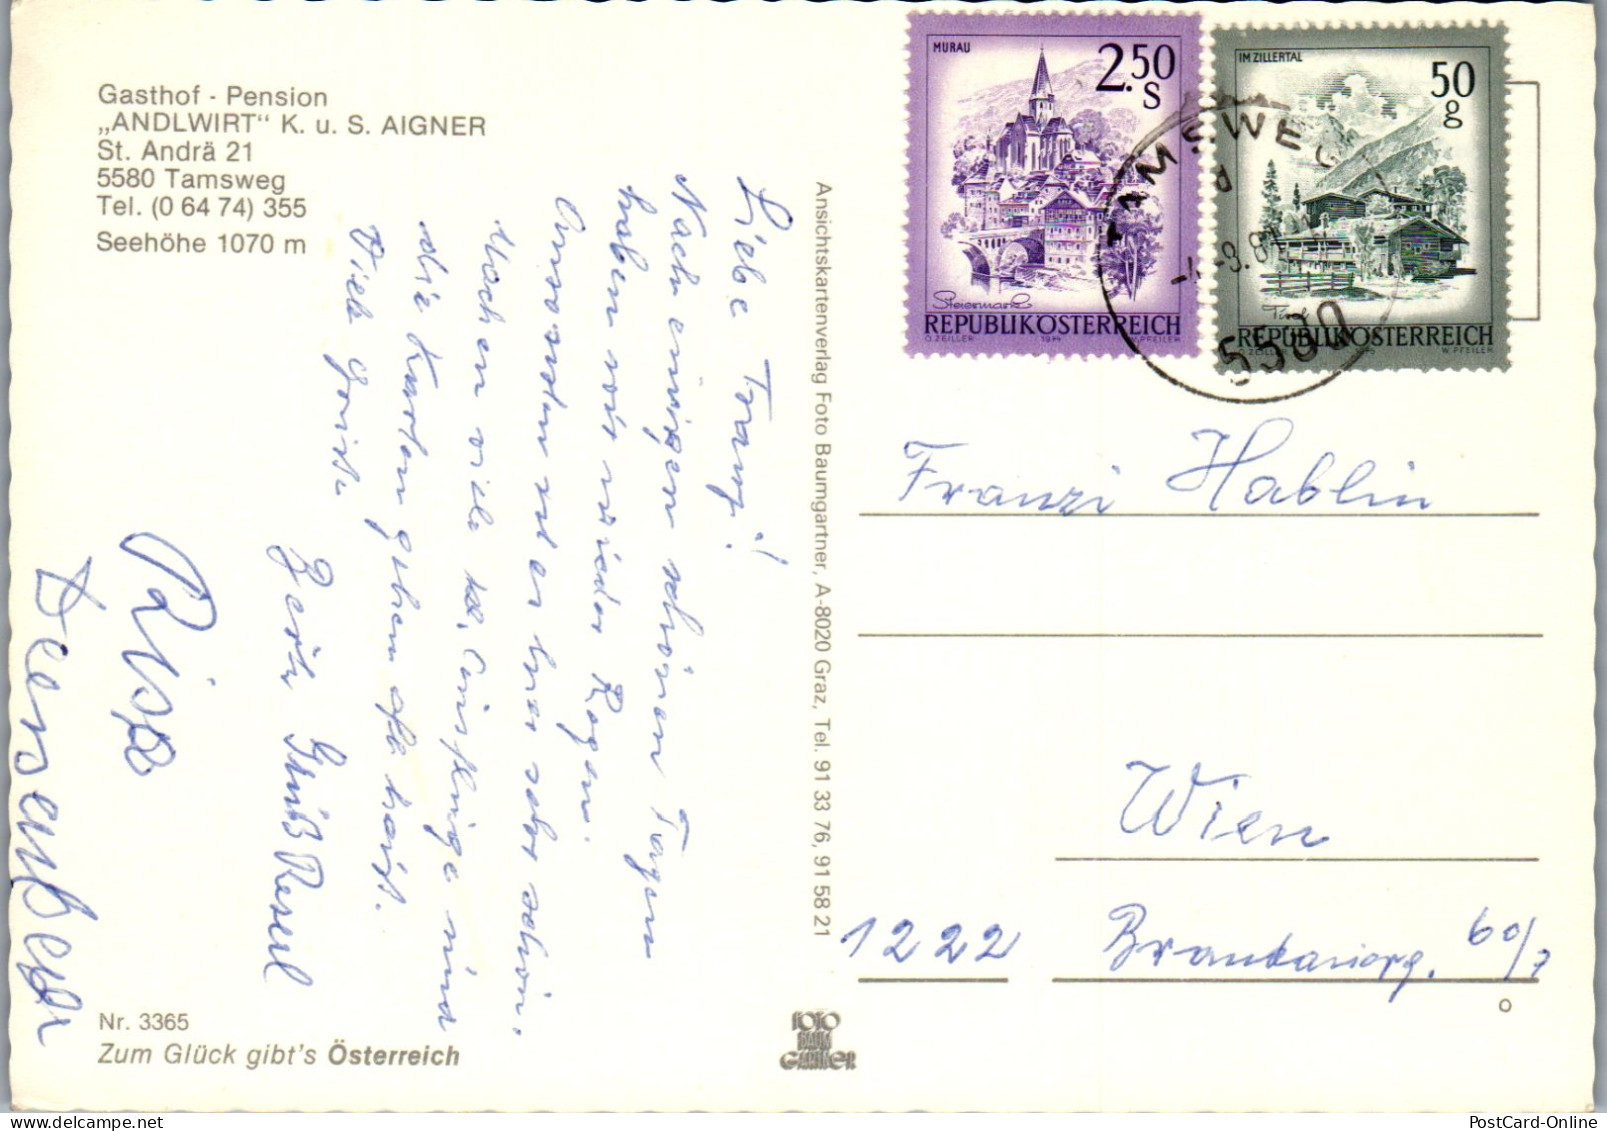 Gasthof - Pension
„ANDLWIRT“ K. u. S. AIGNER
St. Andrä 21
5580 Tamsweg
Tel. (0 64 74) 355
Seehöhe 1070 m
Liebe Franzi!
Nach einigen schönen Tagen
haben wir wieder Regen.
Ansonsten ist es hier sehr schön.
Machen viele Ausflüge und
die Karten gehen oft heiß.
Viele Grüße
Gruß Reserl
Nr. 3365
Zum Glück gibt's Österreich
Ansichtskartenverlag Foto Baumgartner, A-8020 Graz, Tel. 91 33 76, 91 58 21
FOTO
BAUM
GARTNER
MURAU
2.50
S
Steiermark
REPUBLIK ÖSTERREICH
O. ZEILLER
W. PFEILER
IM ZILLERTAL
50
g
Tirol
REPUBLIK ÖSTERREICH
W. PFEILER
TAMSWEG
5580
Franzi Hablin
Wien
1222
60/7